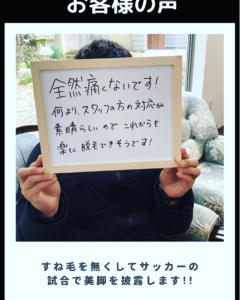 お客様の声
全然痛くないです!
何より、スタッフの方の対応が
素晴らしいので これからも
楽に 脱毛できそうです!
すね毛を無くしてサッカーの
試合で美脚を披露します!!